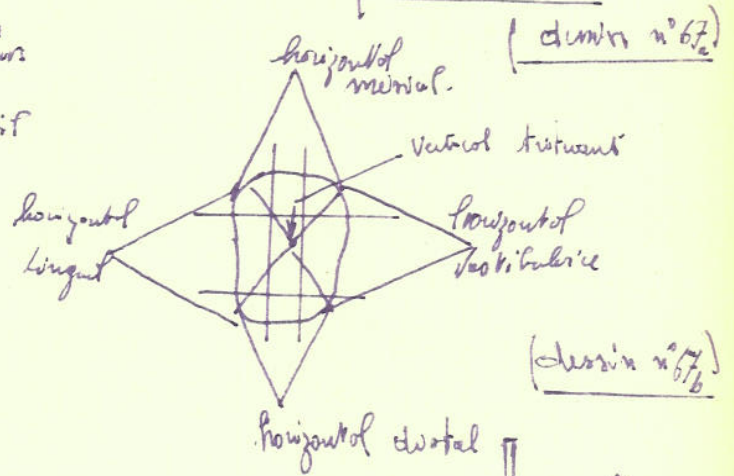 (dessin n°67a)
horizontal
mésial.
vertical
horizontal
lingual
horizontal
vestibulaire
(dessin n°67b)
horizontal distal